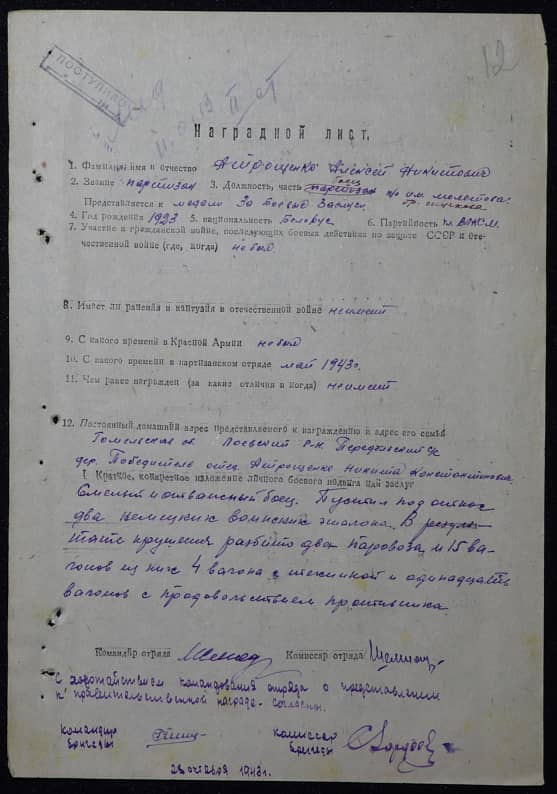 12
ПОСТУПИЛО
Наградной лист.
1. Фамилия, имя и отчество Атрощенко Алексей Никитович
2. Звание партизан 3. Должность, часть боец п/о им. Молотова
Представляется к медали За боевые Заслуги
4. Год рождения 1923 5. национальность Белорус 6. Партийность чл. ВЛКСМ.
7. Участие в гражданской войне, последующих боевых действиях по защите СССР и оте-
чественной войне (где, когда) не был
8. Имеет ли ранения и контузии в отечественной войне неимеет
9. С какого времени в Красной Армии не был
10. С какого времени в партизанском отряде май 1943 г.
11. Чем ранее награжден (за какие отличия и когда) неимеет
12. Постоянный домашний адрес представляемого к награждению и адрес его семьи
Гомельская об. Лоевский р-н
дер. Победитель отец Атрощенко Никита Константинович
I Краткое, конкретное изложение личного боевого подвига или заслуг
Смелый и отважный боец. Пустил под откос
два немецких воинских эшалона. В резуль-
тате крушения разбито два паровоза и 15 ва-
гонов из них 4 вагона с и одинадцать
вагонов с продовольствием противника.
Командир отряда Комиссар отряда
С ходотайством командования отряда о представлении
к правительственной награде - согласны.
командир комиссар
бригады бригады
28 октября 1943 г.